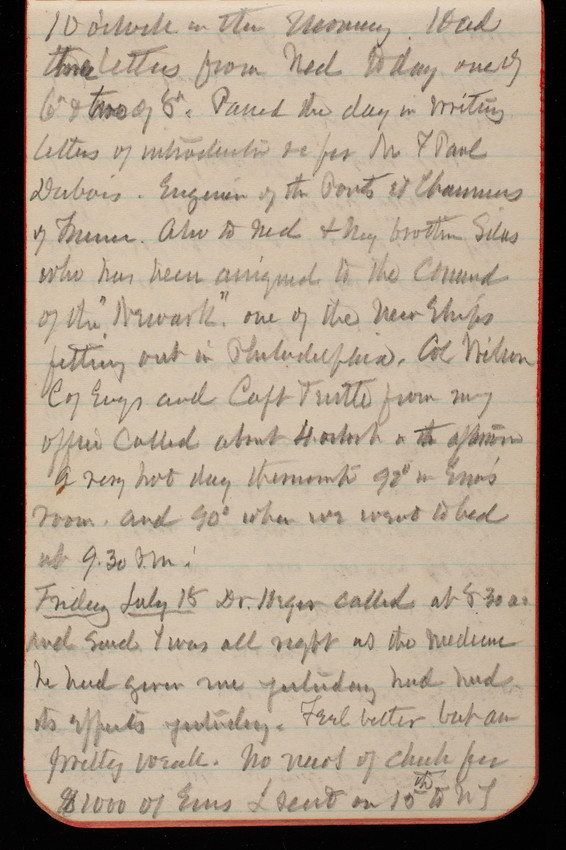 10 o'clock in the morning. Had
three letters from Ned today one of
6th & two of 8th. Passed the day in writing
letters of introduction &c for Mr Paul
Dubois. Engineer of the Ponts et Chaussees
of France. Also to Ned & my brother Silas
who has been assigned to the Comand
of the "Newark". one of the New Ships
fitting out in Philadelphia. Col Wilson
Cof Engs and Capt Turtle from my
office called about 4 oclock in the afternoon
A very hot day thermomtr 92° in Ema's
room. and 90° when we went to bed
at 9.30 P.M.
Friday July 18 Dr. Heger called at 8.30 a.
and said I was all right as the medicine
he had given me yesterday had had
its effects yesterday. Feel better but am
pretty weak. No news of check for
$1000 of Ems I sent on 15th to NY